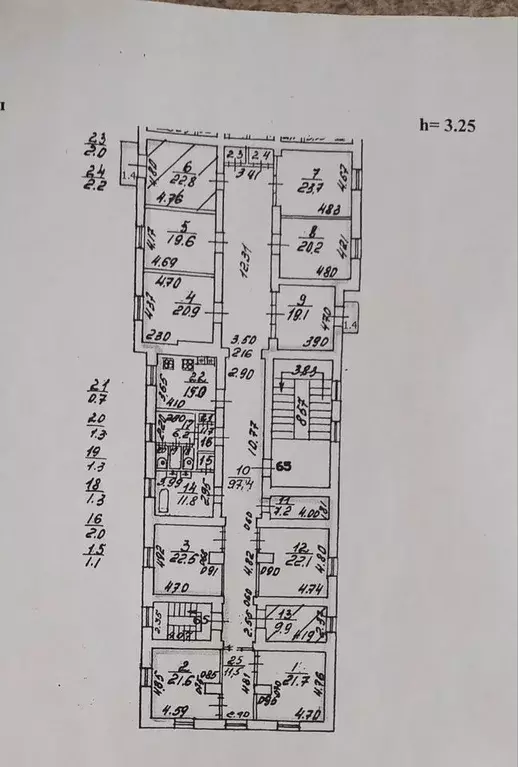 h= 3.25
23
2.0
24
2.2
1.4
4.80
6
22.8
4.76
2.3
2.4
3.41
7
23.7
4.67
4.83
4.17
5
19.6
4.69
12.31
8
20.2
4.21
4.80
4.70
4.37
4
20.9
2.30
9
19.1
4.70
3.90
1.4
3.50
2.16
2.90
21
0.7
20
1.3
19
1.3
18
1.3
16
2.0
15
1.1
3.65
22
15.0
4.10
3.83
8.67
2.20
17
6.2
21
16
15
10.77
65
10
97.4
3.99
14
11.8
2.95
11
7.2
4.00
1.81
0.60
4.92
3
22.6
4.70
0.91
4.82
12
22.1
4.80
0.90
4.74
0.60
2.35
4.07
65
2.56
13
9.9
4.19
4.85
2
21.6
0.85
4.59
25
11.5
4.81
2.40
1
21.7
4.76
4.70